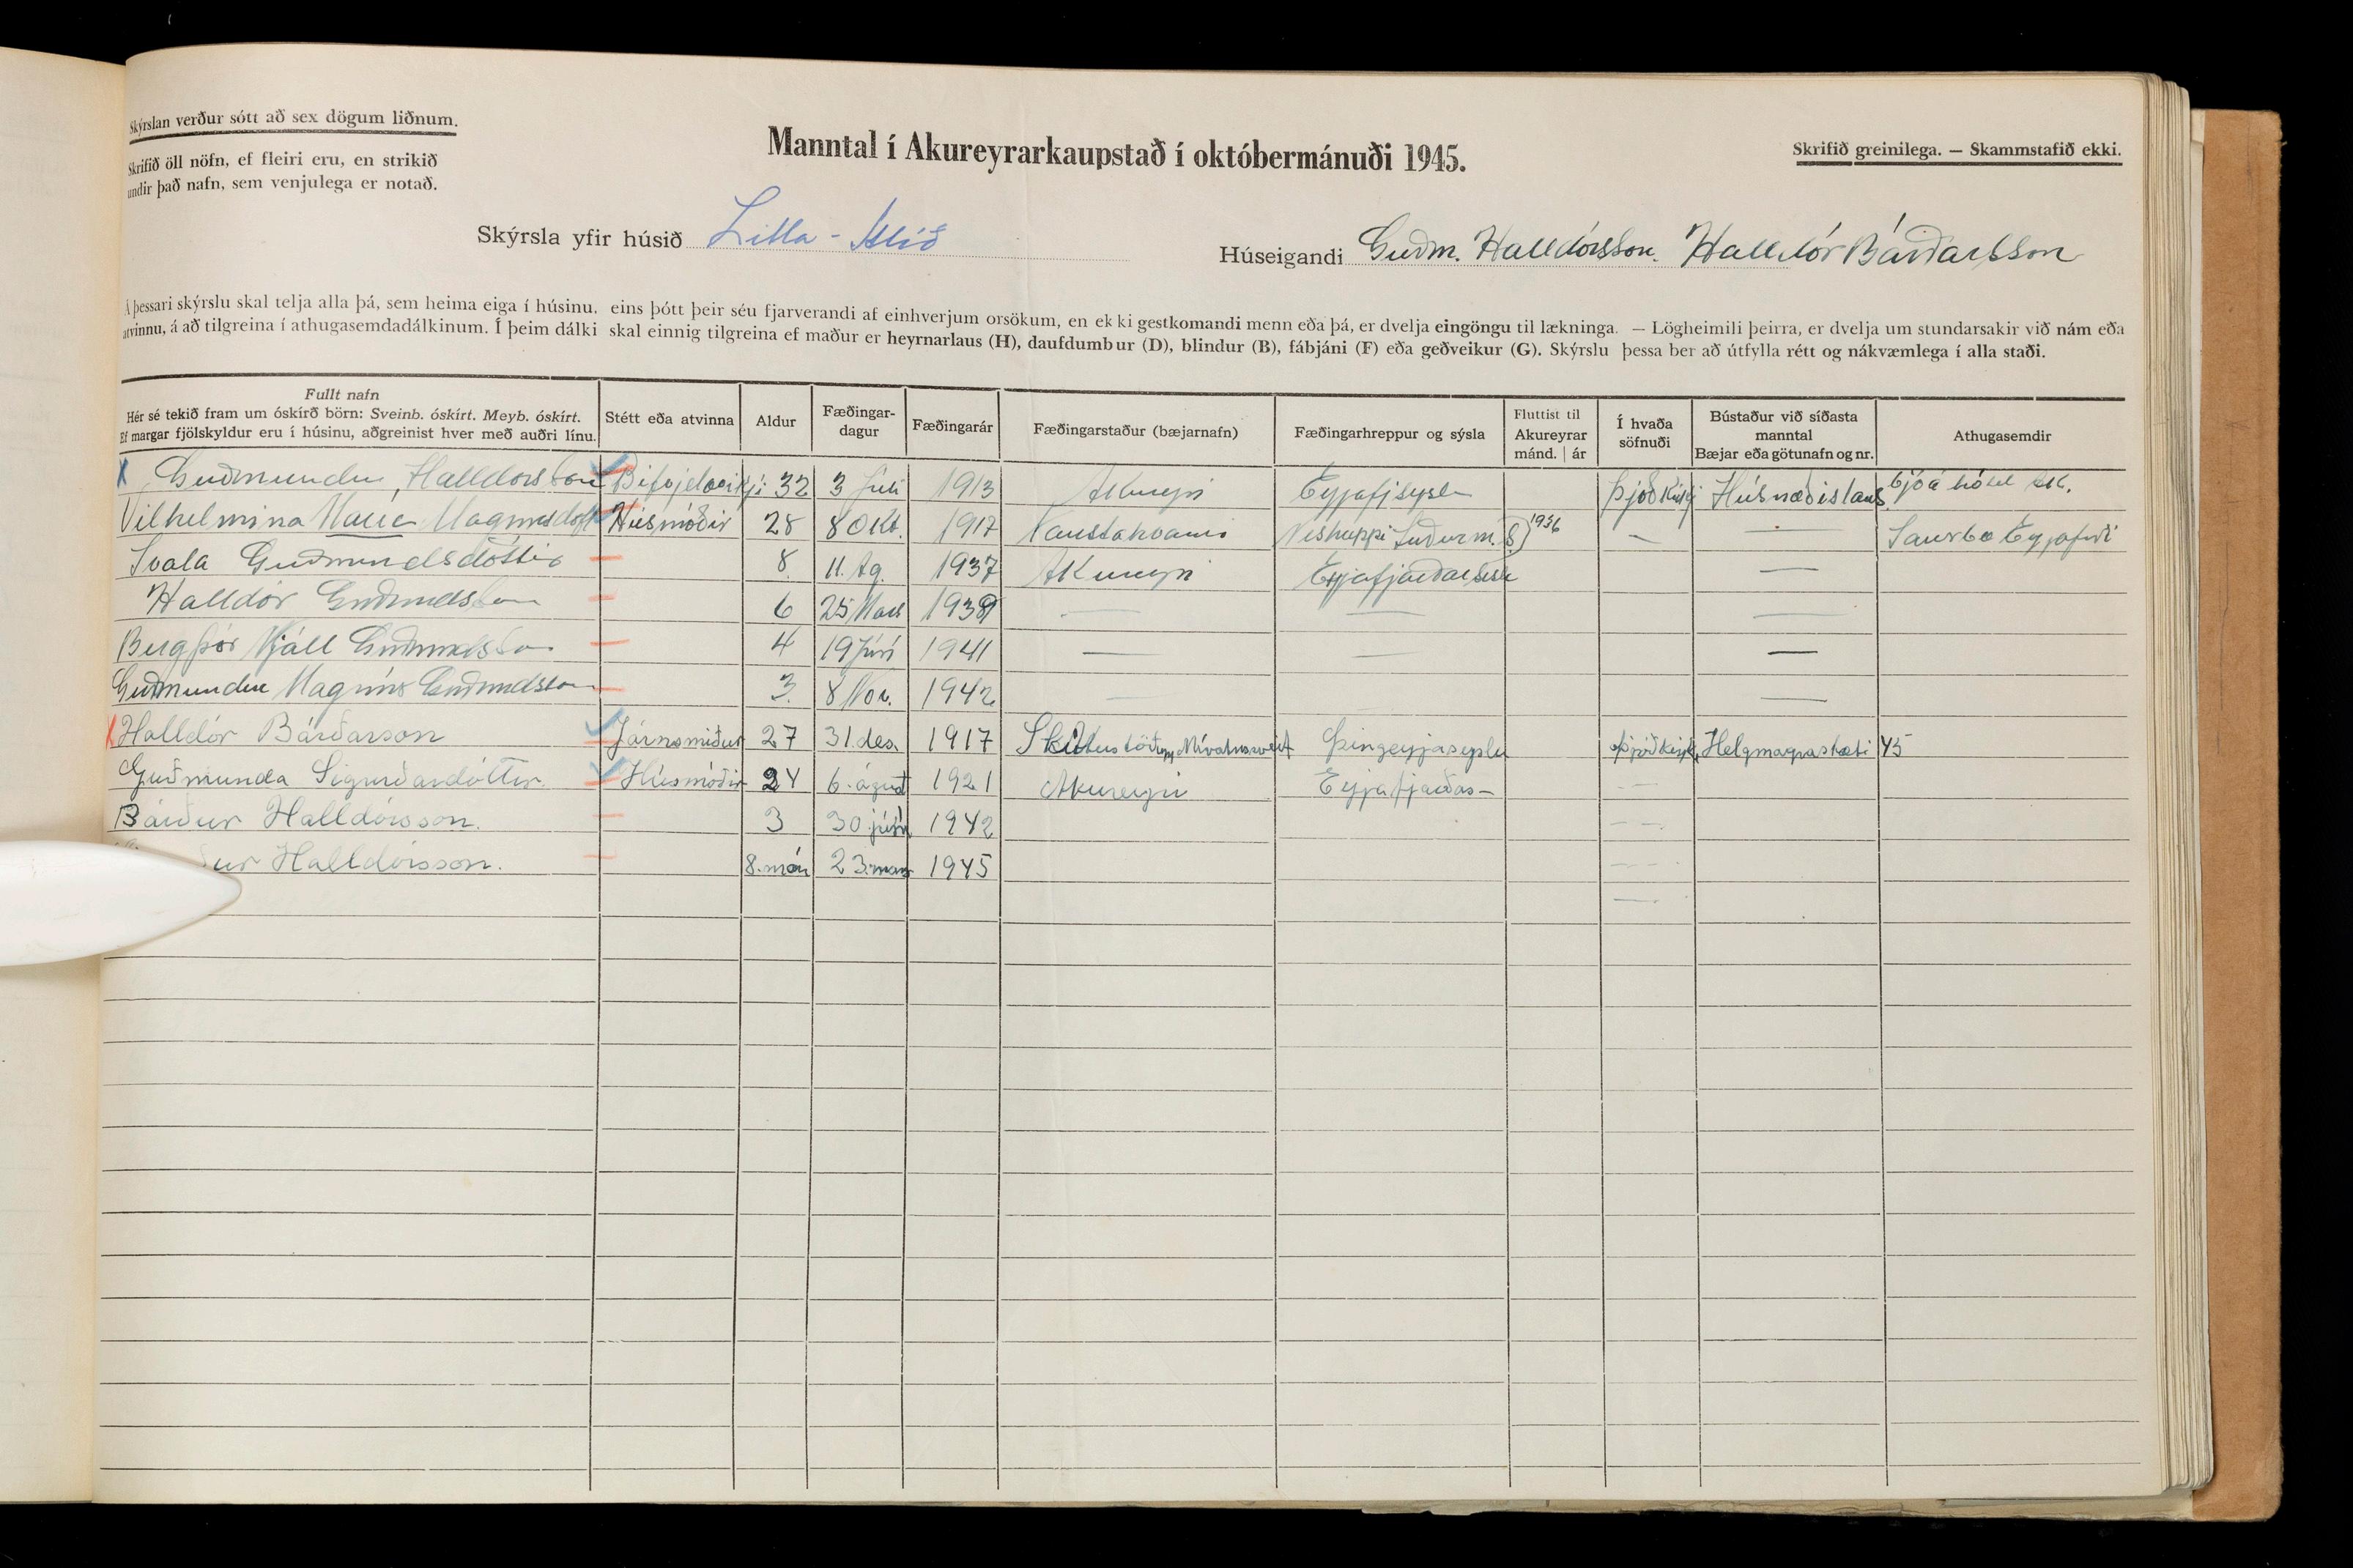 Skýrslan verður sótt að sex dögum liðnum.
Skrifið öll nöfn, ef fleiri eru, en strikið
undir það nafn, sem venjulega er notað.
Manntal í Akureyrarkaupstað í októbermánuði 1945.
Skrifið greinilega. — Skammstafið ekki.
Skýrsla yfir húsið Litla-Hlíð
Húseigandi Guðm. Halldórsson. Halldór Bárðarsson
Á þessari skýrslu skal telja alla þá, sem heima eiga í húsinu, eins þótt þeir séu fjarverandi af einhverjum orsökum, en ekki gestkomandi menn eða þá, er dvelja eingöngu til lækninga. — Lögheimili þeirra, er dvelja um stundarsakir við nám eða
atvinnu, á að tilgreina í athugasemdadálkinum. Í þeim dálki skal einnig tilgreina ef maður er heyrnarlaus (H), daufdumbur (D), blindur (B), fábjáni (F) eða geðveikur (G). Skýrslu þessa ber að útfylla rétt og nákvæmlega í alla staði.
Fullt nafn
Hér sé tekið fram um óskírð börn: Sveinb. óskírt. Meyb. óskírt.
Ef margar fjölskyldur eru í húsinu, aðgreinist hver með auðri línu.
Stétt eða atvinna
Aldur
Fæðingar-
dagur
Fæðingarár
Fæðingarstaður (bæjarnafn)
Fæðingarhreppur og sýsla
Fluttist til
Akureyrar
mánd. | ár
Í hvaða
söfnuði
Bústaður við síðasta
manntal
Bæjar eða götunafn og nr.
Athugasemdir
X Guðmundur Halldorsson 32 3 Júli 1913 Akureyri Eyjafjsysla Þjóðkirkj Húsnæðislaus
Vilhelmina Marie Magnusdott Húsmóðir 28 8 Okt. 1917 Neshreppi Suðurm.S) 1936 — —
Svala Guðmundsdóttir 8 11. Ag. 1937 Akureyri Eyjafjarðar —
Halldór Guðmundsson 6 25 Mars 1939 — — —
Bergþór Njáll Guðmundsson 4 19 Júní 1941 — — —
Guðmundur Magnús Guðmundsson 3 8 Nov. 1942 — — —
X Halldór Bárðarson Járnsmiður 27 31 des. 1917 Skútustöðum Mívatnssveit Þingeyjasyslu Þjóðkirkj. Helgmagrastræti 45
Guðmunda Sigurðardóttir. Húsmóðir 24 6. ágúst 1921 Akureyri Eyjafjarðar— —
Bárður Halldórsson. 3 30 júní 1942 —
Halldórsson. 8. mán 23. mars 1945 —